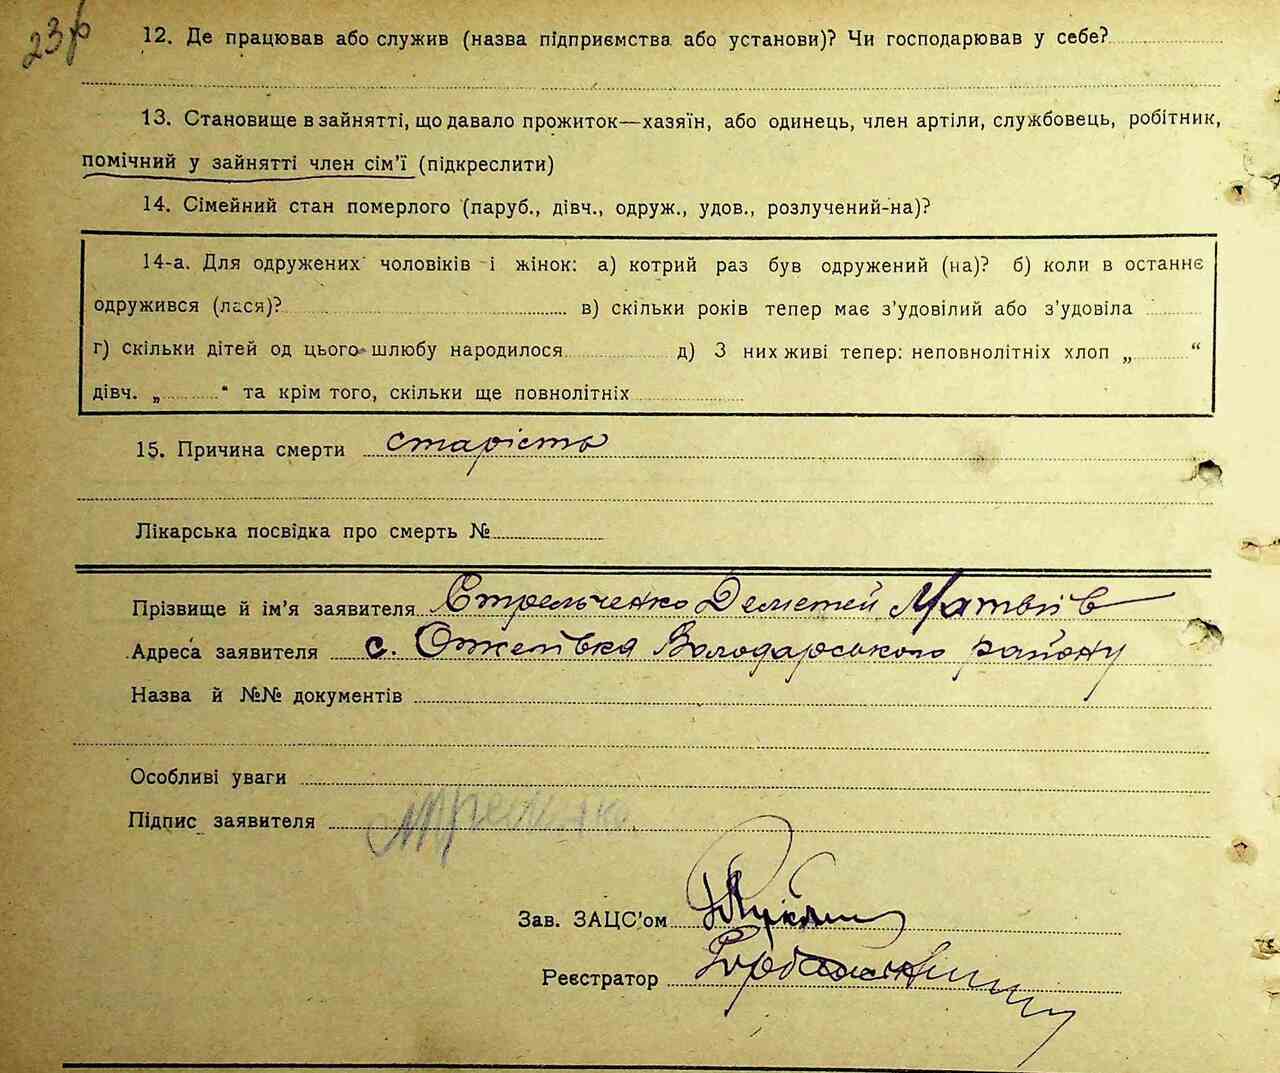 12. Де працював або служив (назва підприємства або установи)? Чи господарював у себе?
13. Становище в зайнятті, що давало прожиток—хазяїн, або одинець, член артіли, службовець, робітник,
помічний у зайнятті член сім’ї (підкреслити)
14. Сімейний стан померлого (паруб., дівч., одруж., удов., розлучений-на)?
14-а. Для одружених чоловіків і жінок: а) котрий раз був одружений (на)? б) коли в останнє
одружився (лася)? в) скільки років тепер має з’удовілий або з’удовіла
г) скільки дітей од цього шлюбу народилося д) З них живі тепер: неповнолітніх хлоп „ “
дівч. „ “ та крім того, скільки ще повнолітніх
15. Причина смерти старість
Лікарська посвідка про смерть №
Прізвище й ім’я заявителя Стрельченко Матвіїв
Адреса заявителя с. Володарського району
Назва й №№ документів
Особливі уваги
Підпис заявителя
Зав. ЗАЦС’ом
Реєстратор